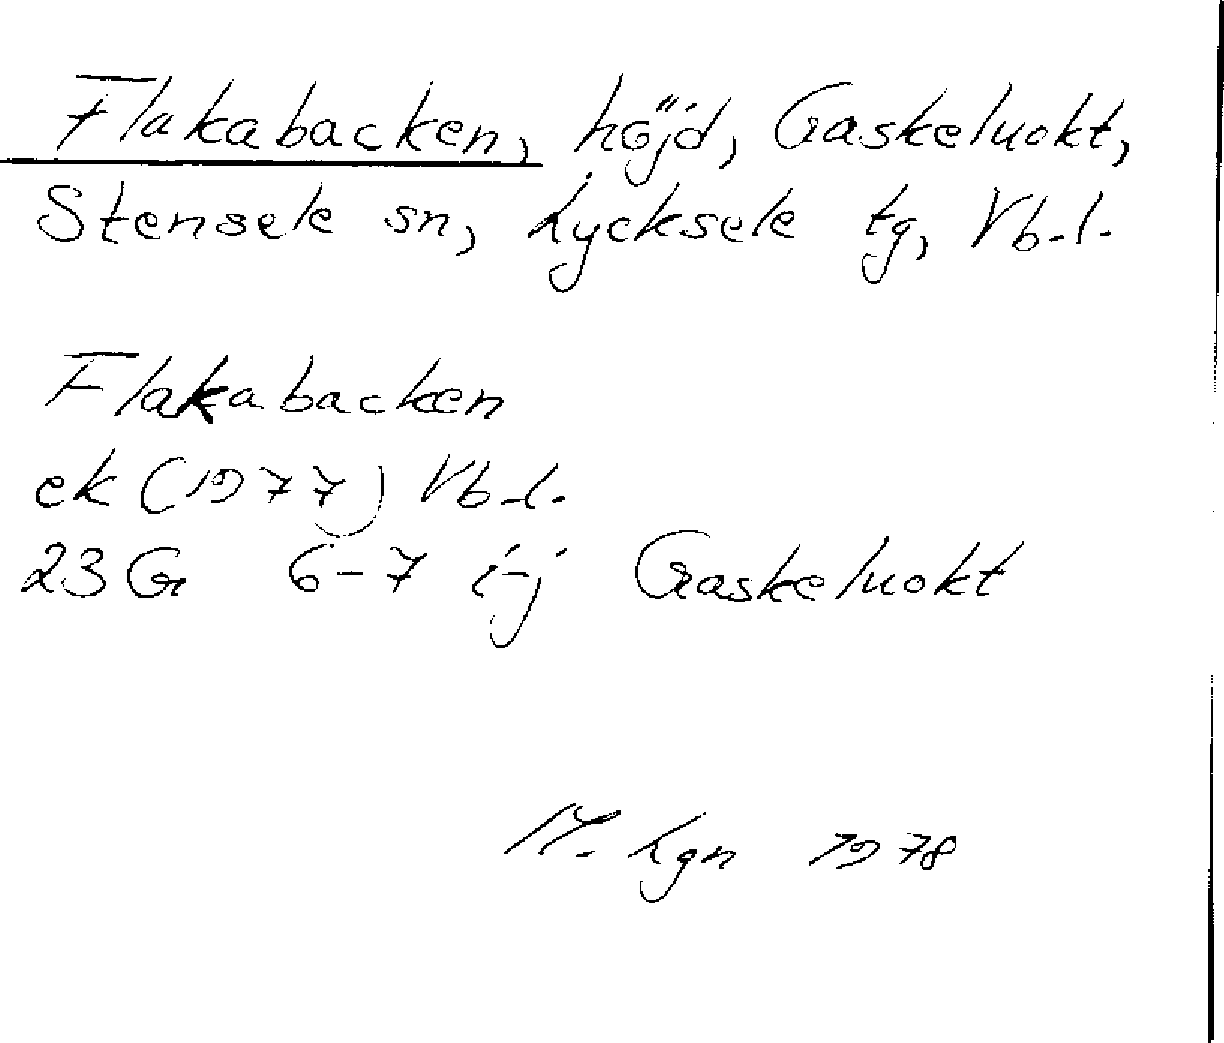 Flakabacken, höjd, Gaskeluokt,
Stensele sn, Lycksele tg, Vb.l.
Flakabacken
ek (1977) Vb.l.
23G 6-7 i-j Gaskeluokt
M. Lgn 1978